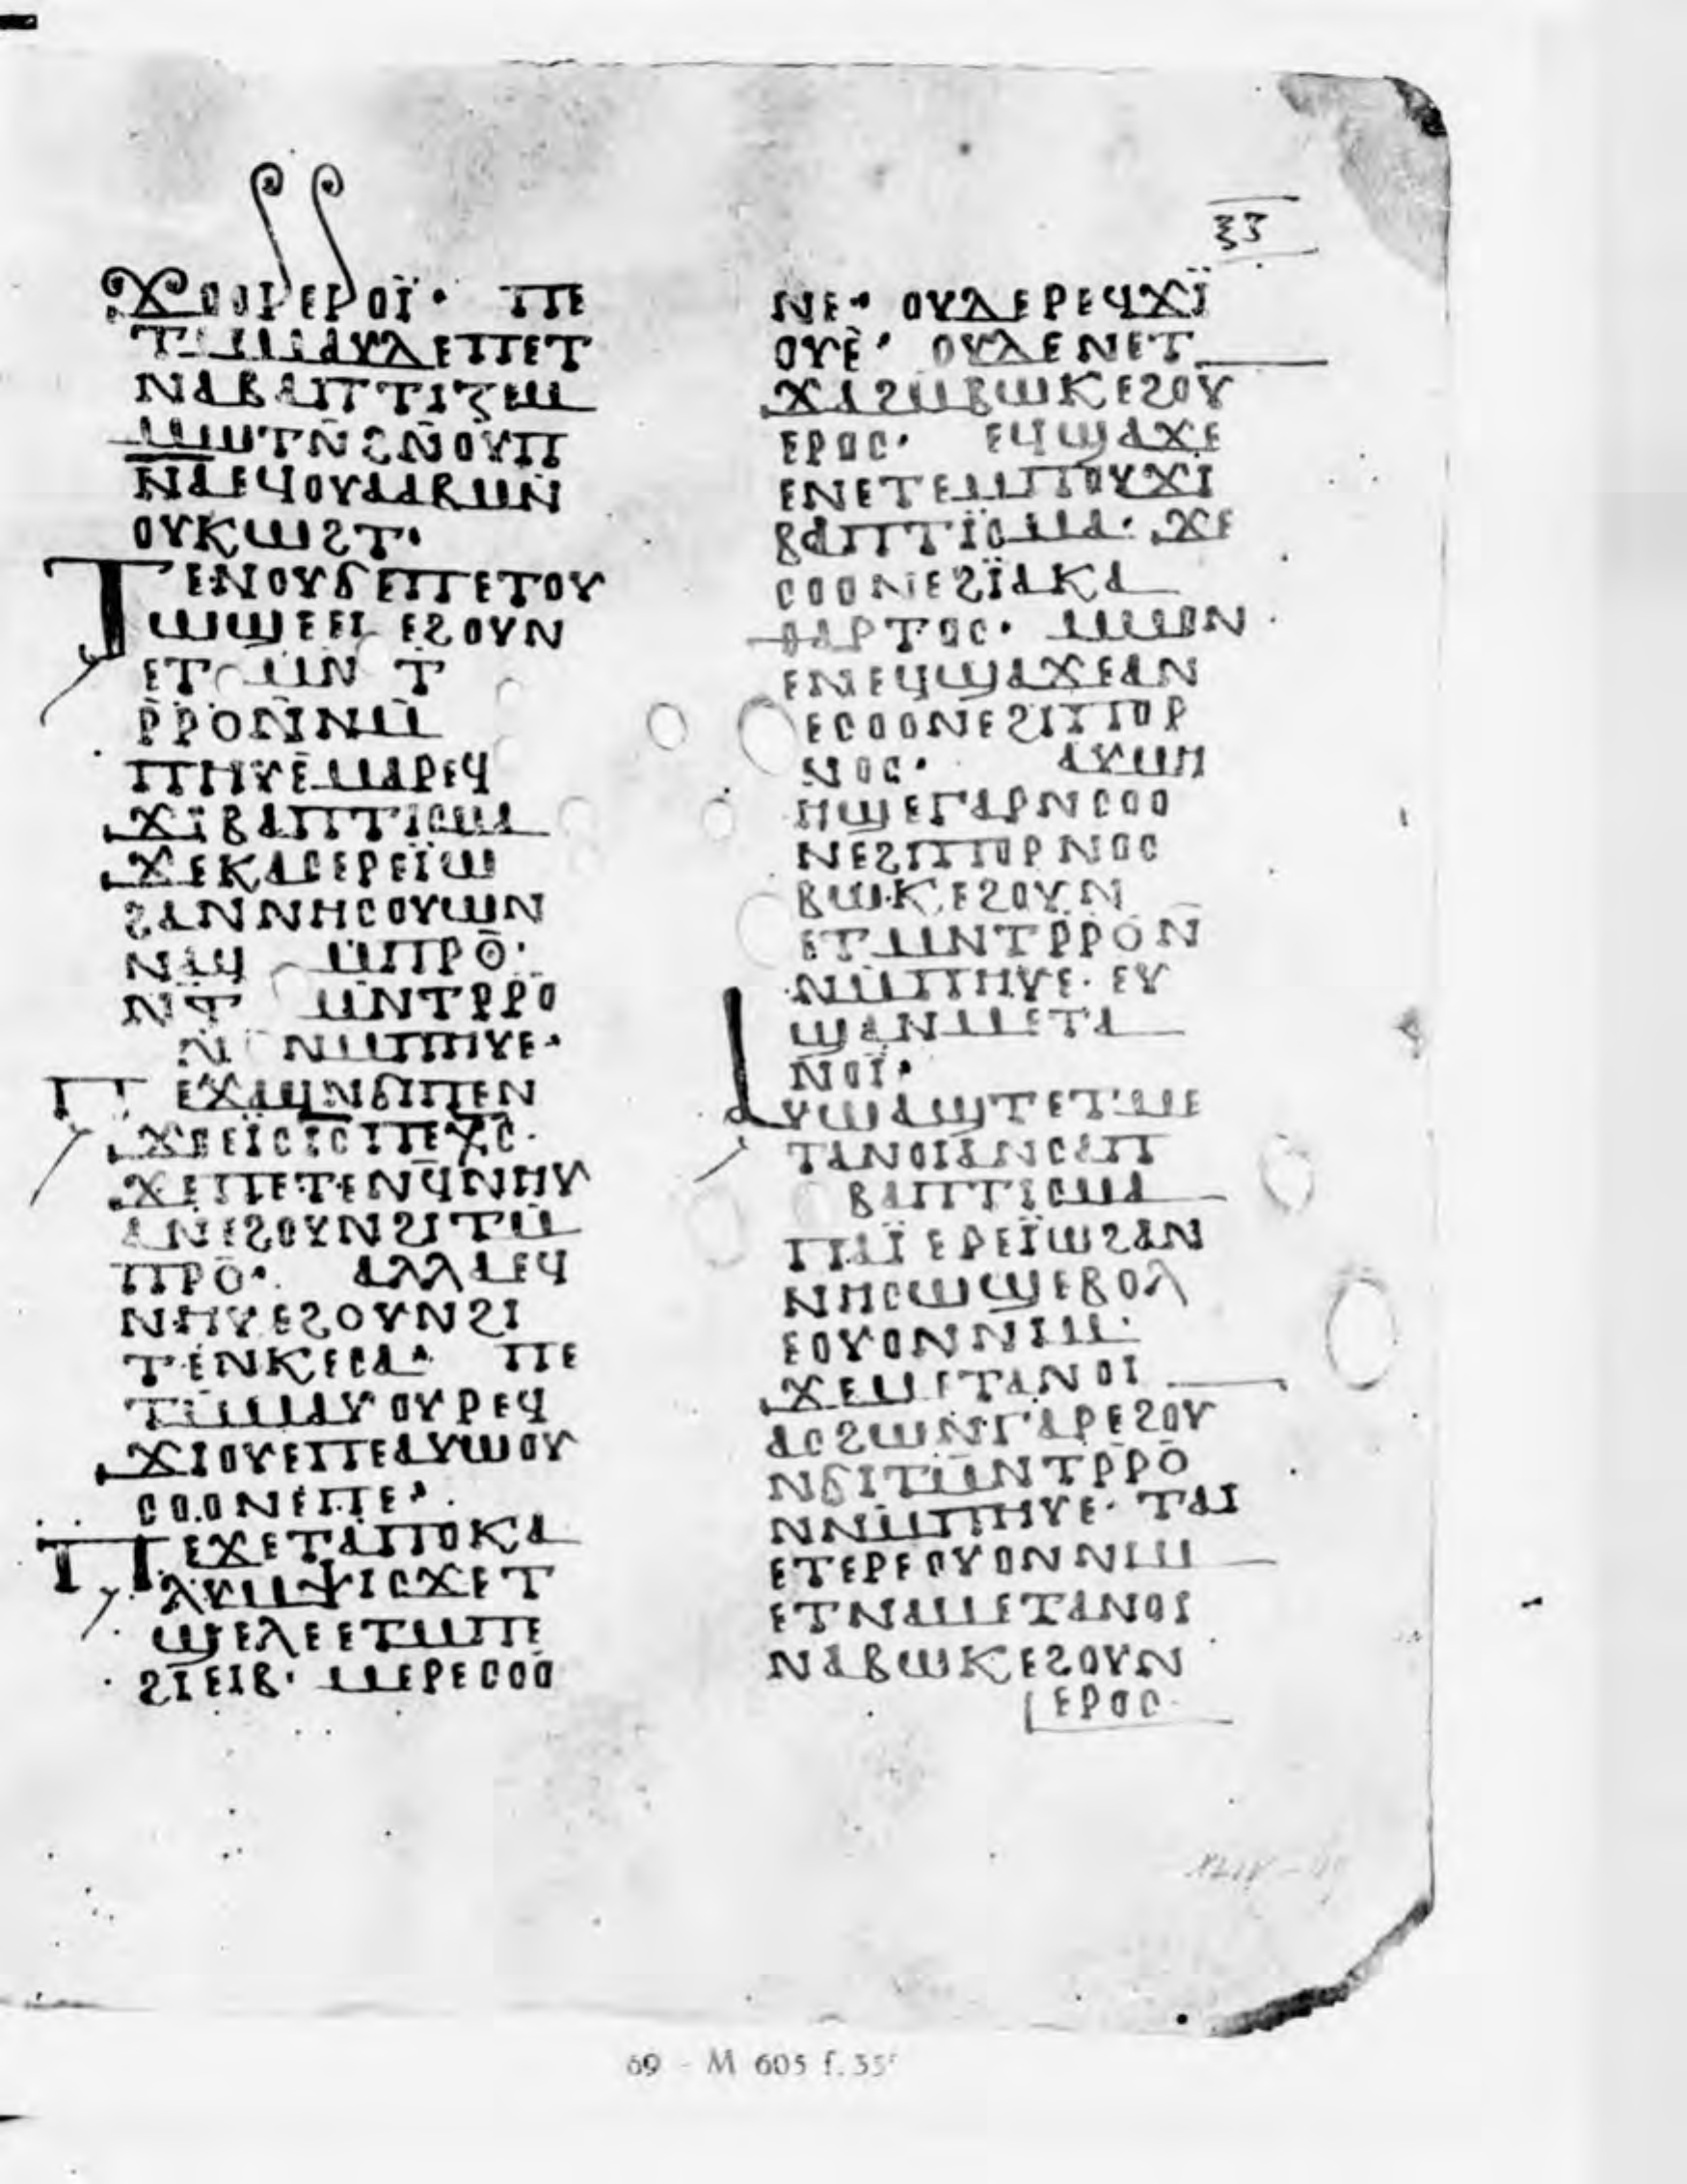 ⲝⲍ
ϫⲟⲟⲣ ⲉⲣⲟⲓ̈· ⲡⲉ
ⲧⲙ̄ⲙⲁⲩⲇⲉⲡⲉⲧ
ⲛⲁⲃⲁⲡⲧⲓⲍⲉⲙ
ⲙⲱⲧⲛ̄ϩⲛ̄ⲟⲩⲡ
ⲛ̄ⲁⲉϥⲟⲩⲁⲁⲃⲙⲛ̄
ⲟⲩⲕⲱϩⲧ·
ⲧⲉⲛⲟⲩϭⲉⲡⲉⲧⲟⲩ
ⲱϣⲉⲉⲓ ⲉϩⲟⲩⲛ
ⲉⲧ ⲙⲛ ⲧ
ⲣ̄ⲣⲟⲛ̄ⲛⲙ̄
ⲡⲏⲩⲉ̄ⲙⲁⲣⲉϥ
ϫⲓ̈ⲃⲁⲡⲧⲓⲥⲙⲁ
ϫⲉⲕⲁⲥⲉⲣⲉⲓ̈ⲱ
ϩⲁⲛⲛⲏⲥⲟⲩⲱⲛ
ⲛⲁϥ ⲙ̄ⲡⲣⲟ̄·
ⲛ̄ⲧ ⲙⲛ̄ⲧⲣ̄ⲣⲟ
ⲛ̄ ⲛⲙ̄ⲡⲏⲩⲉ·
ⲡⲉϫⲁϥⲛϭⲓⲡⲉⲛ
ϫⲟⲉⲓ̈ⲥⲓ̄ⲥ̄ⲡⲉⲭ̄ⲥ̄·
ϫⲉⲡⲉⲧⲉⲛϥⲛⲏⲩ
ⲁⲛⲉϩⲟⲩⲛϩⲓⲧⲙ̄
ⲡⲣⲟ̄· ⲁⲗⲗⲁⲉϥ
ⲛⲏⲩⲉϩⲟⲩⲛϩⲓ
ⲧⲉ̄ⲛⲕⲉⲥⲁ· ⲡⲉ
ⲧⲙ̄ⲙⲁⲩⲟⲩⲣⲉϥ
ϫⲓⲟⲩⲉⲡⲉⲁⲩⲱⲟⲩ
ⲥⲟⲟⲛⲉⲡⲉ·
ⲡⲉϫⲉⲧⲁⲡⲟⲕⲁ
ⲗⲩⲙⲯⲓⲥϫⲉⲧ
ϣⲉⲗⲉⲉⲧⲙ̄ⲡⲉ
ϩⲓⲉⲓⲃ· ⲙⲉⲣⲉⲥⲟⲟ
ⲛⲉ· ⲟⲩⲇⲉⲣⲉϥϫⲓ̈
ⲟⲩⲉ̀· ⲟⲩⲇⲉⲛⲉⲧ
ϫⲁϩⲙ̄ⲃⲱⲕⲉϩⲟⲩ
ⲉⲣⲟⲥ· ⲉϥϣⲁϫⲉ
ⲉⲛⲉⲧⲉⲙⲡⲟⲩϫⲓ
ⲃⲁⲡⲧⲓ̈ⲥⲙⲁ· ϫⲉ
ⲥⲟⲟⲛⲉϩⲓ̈ⲁⲕⲁ
ⲑⲁⲣⲧⲟⲥ· ⲙⲙⲟⲛ
ⲉⲛⲉϥϣⲁϫⲉⲁⲛ
ⲉⲥⲟⲟⲛⲉϩⲓⲡⲟⲣ
ⲛⲟⲥ· ⲁⲩⲙⲏ
ⲏϣⲉⲅⲁⲣⲛⲥⲟⲟ
ⲛⲉϩⲓⲡⲟⲣⲛⲟⲥ
ⲃⲱⲕⲉϩⲟⲩⲛ
ⲉⲧⲙⲛⲧⲣ̄ⲣⲟⲛ̄
ⲛⲙ̄ⲡⲏⲩⲉ· ⲉⲩ
ϣⲁⲛⲙⲉⲧⲁ
ⲛⲟⲓ̈·
ⲁⲩⲱⲁϣⲧⲉⲧⲙⲉ
ⲧⲁⲛⲟⲓⲁⲛⲥⲁⲡ
ⲃⲁⲡⲧⲓⲥⲙⲁ
ⲡⲁⲓ̈ⲉⲣⲉⲓ̈ⲱϩⲁⲛ
ⲛⲏⲥⲱϣⲉⲃⲟⲗ
ⲉⲟⲩⲟⲛⲛⲓⲙ·
ϫⲉⲙⲉⲧⲁⲛⲟⲓ
ⲁⲥϩⲱⲛ̄ⲅⲁⲣⲉϩⲟⲩ
ⲛϭⲓⲧⲙ̄ⲛⲧⲣ̄ⲣⲟ̄
ⲛⲛⲙ̄ⲡⲏⲩⲉ· ⲧⲁⲓ
ⲉⲧⲉⲣⲉⲟⲩⲟⲛⲛⲓⲙ
ⲉⲧⲛⲁⲙⲉⲧⲁⲛⲟⲓ
ⲛⲁⲃⲱⲕⲉϩⲟⲩⲛ
ⲉⲣⲟⲥ
69 - M 605 f. 35r